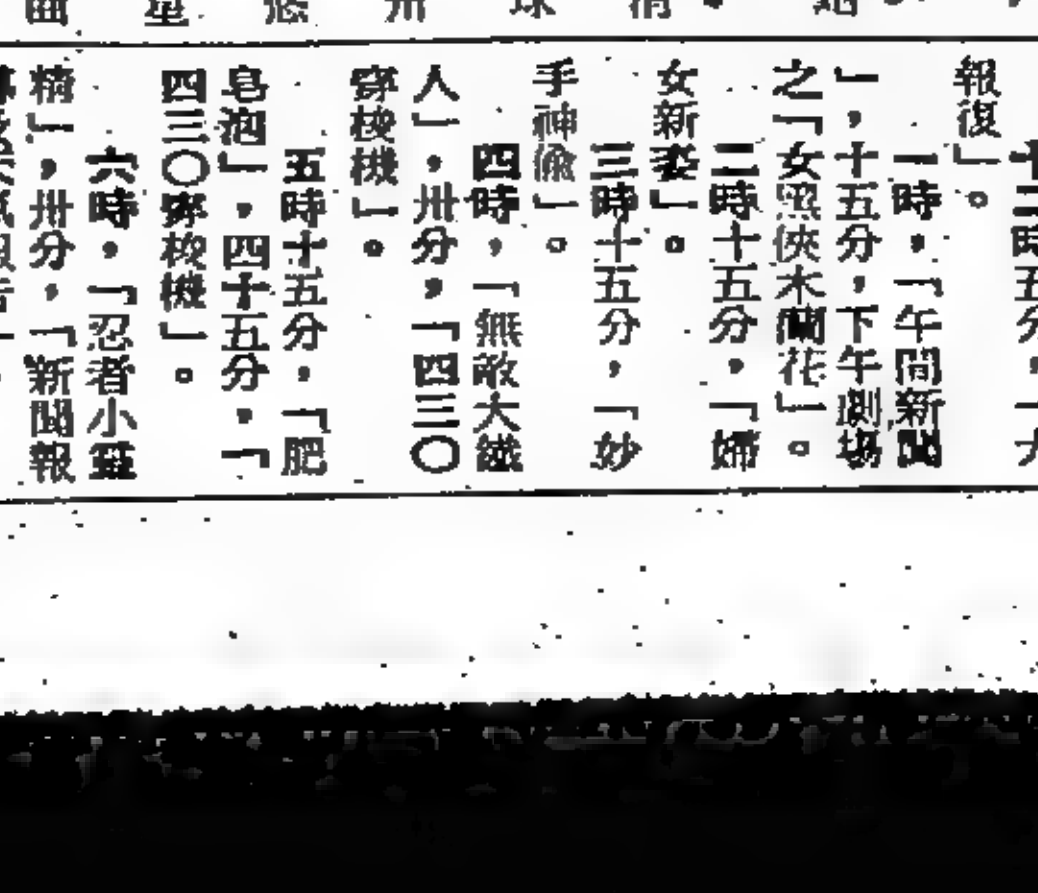 十二時五分,「大
報復」。
一時,「午間新聞
」,十五分,下午劇場
之「女黑俠木蘭花」。
二時十五分,「婦
女新姿」。
三時十五分,「妙
手神偸」。
四時,「無敵大鐵
人」,卅分,「四三〇
穿梭機」。
五時十五分,「肥
皂泡」,四十五分,「
四三〇穿梭機」。
六時,「忍者小靈
精」,卅分,「新聞報